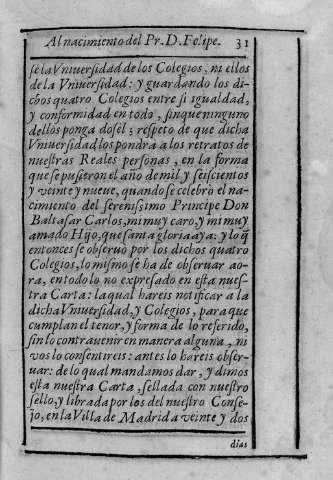 Al nacimiento del Pr. D. Felipe. 31
se la Vniuersidad de los Colegios, ni ellos
de la Vniuersidad: y guardando los di-
chos quatro Colegios entre si igualdad,
y conformidad en todo, sin que ninguno
dellos ponga dosel; respeto de que dicha
Vniuersidad los pondra a los retratos de
nuestras Reales personas, en la forma
que se pusieron el año de mil y seiscientos
y veinte y nueue, quando se celebrò el na-
cimiento del serenissimo Principe Don
Baltasar Carlos, mi muy caro, y mi muy
amado Hijo, que santa gloria aya: y lo q̃
entonces se obseruò por los dichos quatro
Colegios, lo mismo se ha de obseruar ao-
ra, en todo lo no expresado en esta nues-
tra Carta: la qual hareis notificar a la
dicha Vniuersidad, y Colegios, para que
cumplan el tenor, y forma de lo referido,
sin lo contrauenir en manera alguna, ni
vos lo consentireis: antes lo hareis obser-
uar: de lo qual mandamos dar, y dimos
esta nuestra Carta, sellada con nuestro
sello, y librada por los del nuestro Conse-
jo, en la Villa de Madrid a veinte y dos
dias